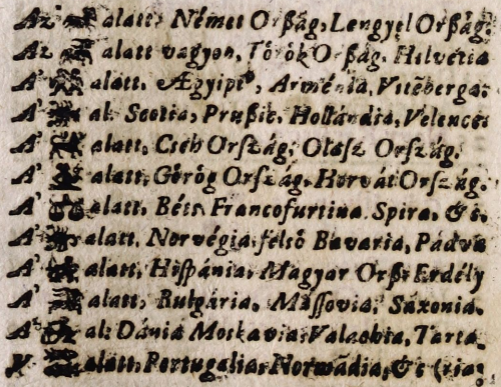 Az alatt, Német Orßág, Lengyel Orßág.
Az alatt vagyon, Tőrők Orßág. Helvetia
A' alatt. Ægyipt⁹, Arménia, Vitēberga:
A' al: Scotia, Prußie, Hollándia, Velencze
A' alatt, Cseh Orſzág, Olasz Orſzág.
A' alatt, Gőrőg Orſzág, Horvát Orſzág.
A' alatt, Béts Francofurtina. Spira, &c.
A' alatt, Norvégia, felső Bavaria, Pádva
A' alatt, Hiſpánia, Magyar Orß: Erdély
A' alatt, Bulgária, Maſſovia, Saxonia.
A' al: Dánia Moskavia, Valachia, Tarta.
alatt, Portugalia, Normādia, &c (ria: